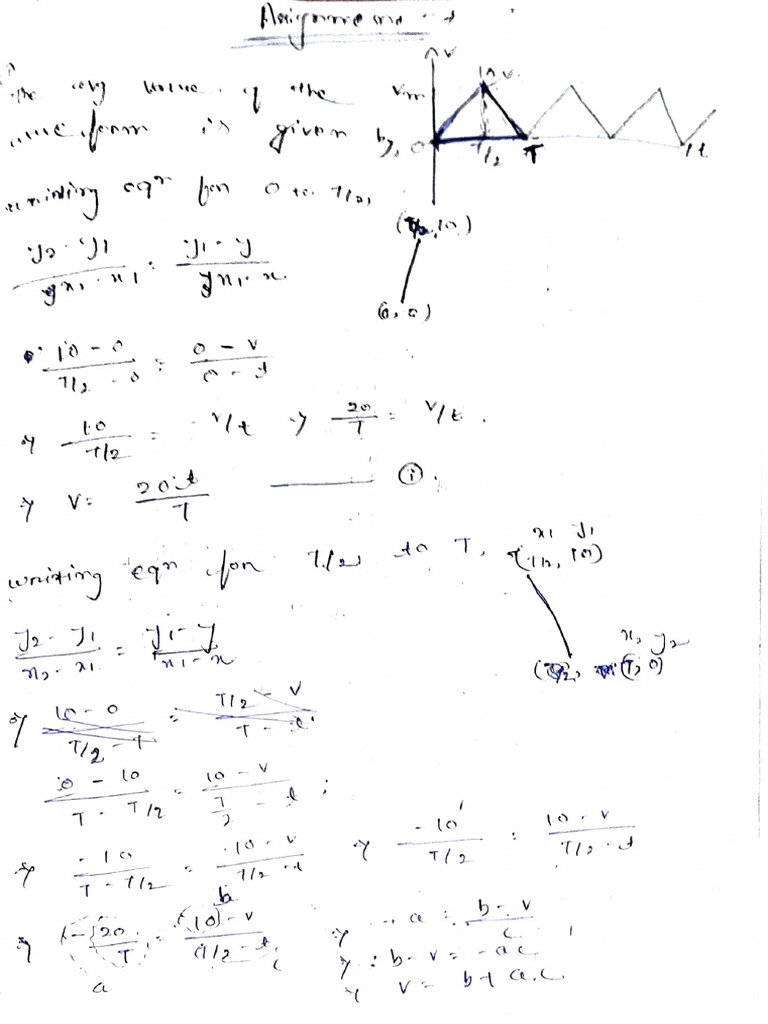 Assignment
10V
V
Vm
The avg value of the
waveform is given by,
0 T/2 T t
writing eqn for 0 to T/2,
(T/2, 10)
(0, 0)
y2 - y1 / x2 - x1 = y1 - y / x1 - x
10 - 0 / T/2 - 0 = 0 - V / 0 - t
⇒ 10 / T/2 = V/t ⇒ 20/T = V/t.
⇒ V = 20t / T ——— (i).
writing eqn for T/2 to T,
x1 y1
(T/2, 10)
x2 y2
(T, 0)
y2 - y1 / x2 - x1 = y1 - y / x1 - x
⇒ 10 - 0 / T/2 - T = T/2 - V / T - t
0 - 10 / T - T/2 = 10 - V / T/2 - t ;
⇒ -10 / T - T/2 = 10 - V / T/2 - t ⇒ -10 / T/2 = 10 - V / T/2 - t
b
⇒ -(20/T) = (10) - V / (T/2 - t) c ⇒ -a = b - V / c
a
⇒ b - V = -ac
⇒ V = b + a.c